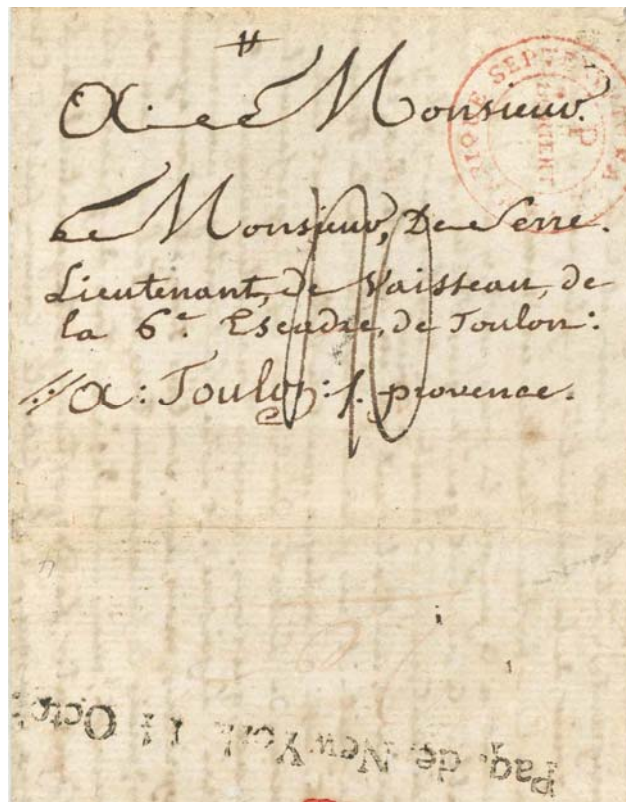 A Monsieur.
Monsieur, De Serre.
Lieutenant, de Vaisseau, de
la 6.e Escadre, de Toulon:
A: Toulon: f. provence.
Paq. de New York 11 Octo